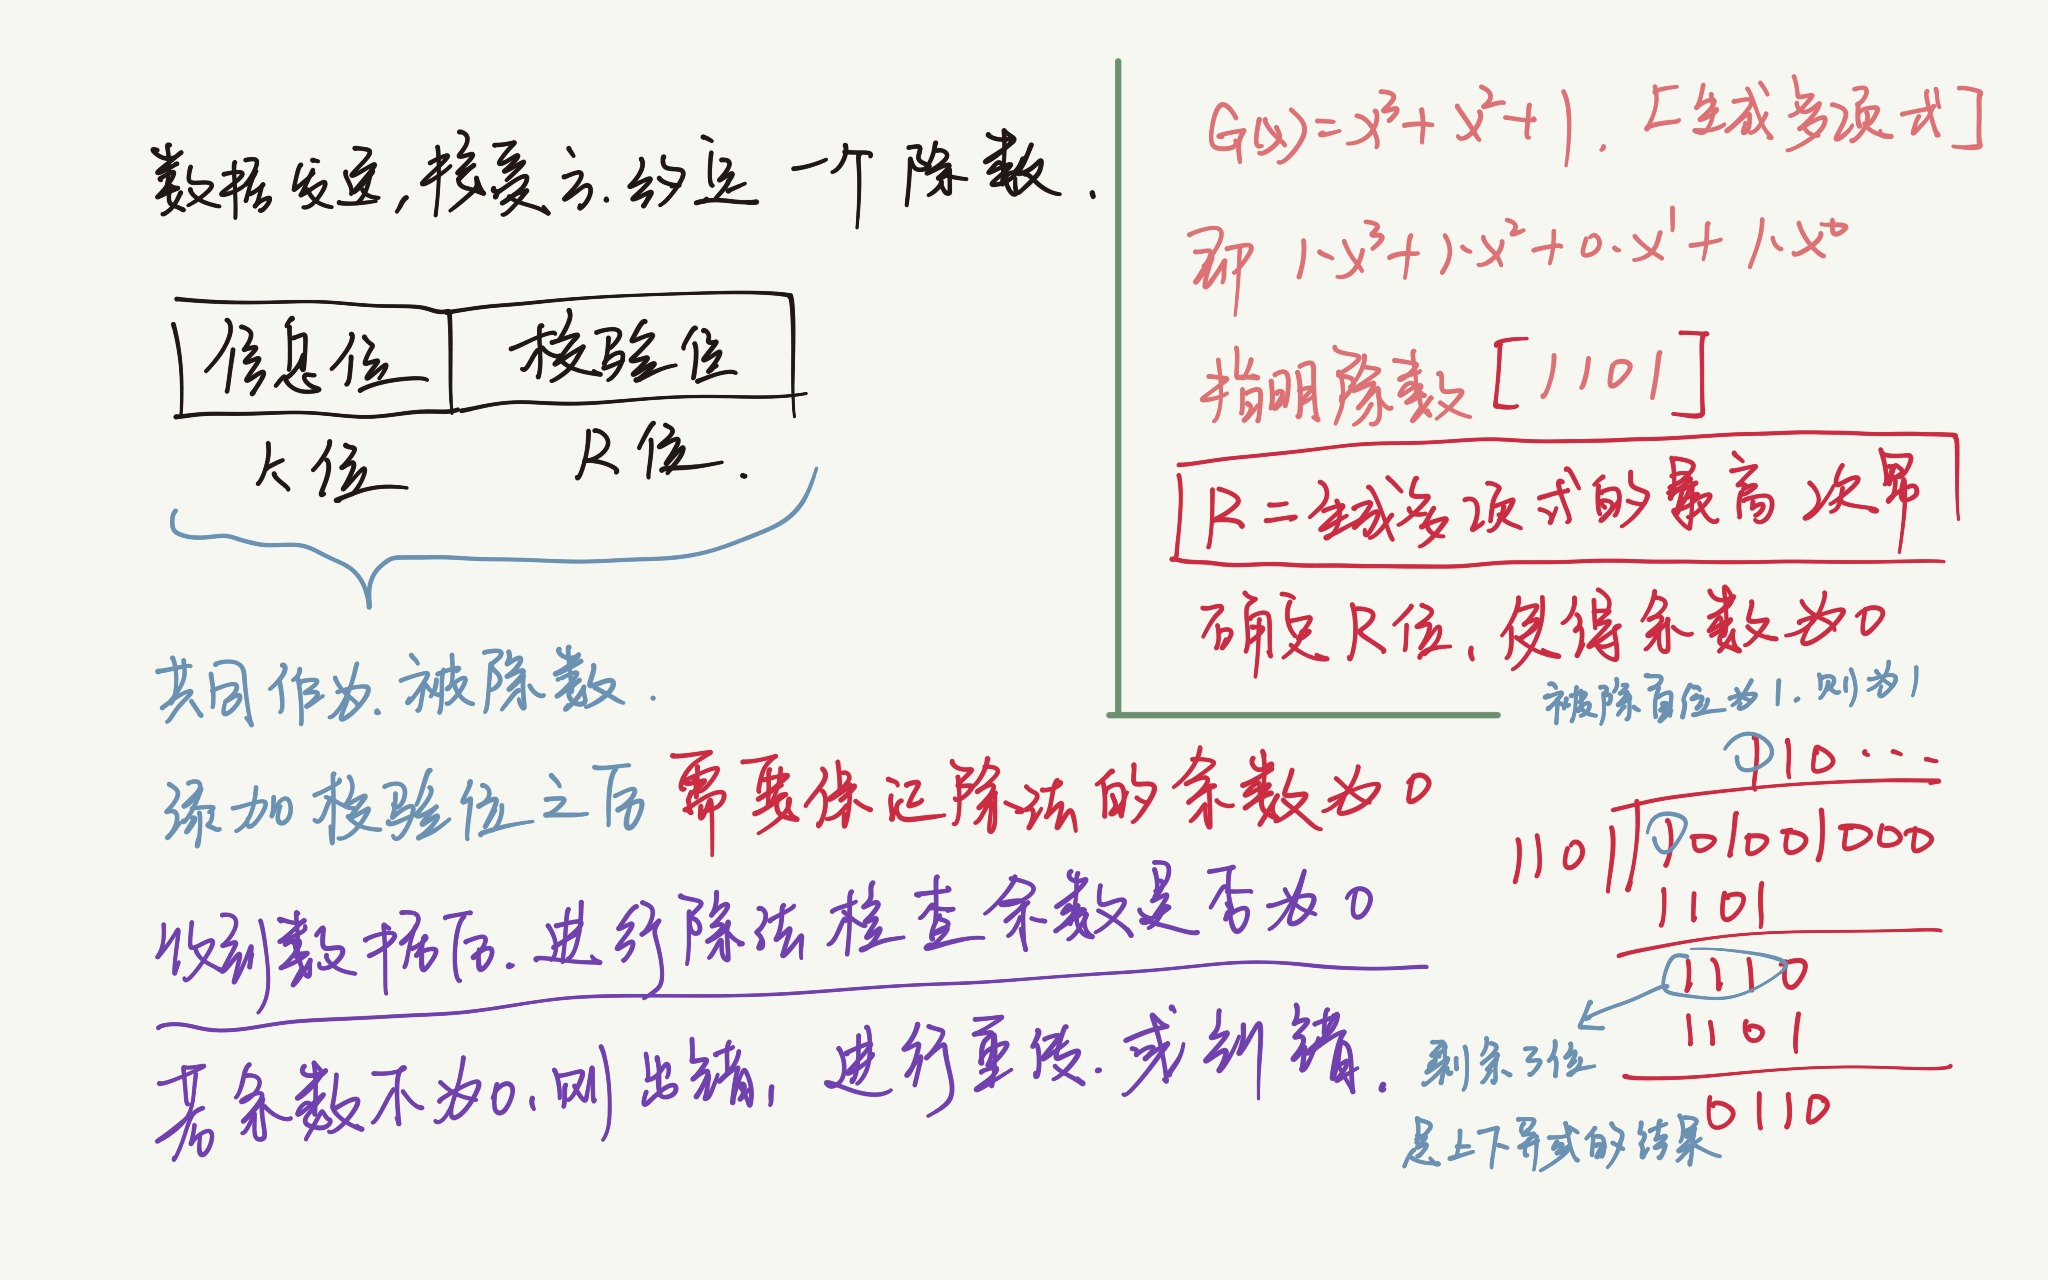 数据发送,接受方.约定一个除数.
信息位 校验位
K位 R位.
共同作为.被除数.
添加校验位之后 需要保证除法的余数为0
收到数据后.进行除法检查余数是否为0
若余数不为0.则出错,进行重传.或纠错.
G(x)=x³+x²+1. [生成多项式]
即 1·x³+1·x²+0·x¹+1·x⁰
指明除数[1101]
R=生成多项式的最高次幂
确定R位,使得余数为0
被除首位为1.则为1
110...
1101 101001000
1101
1110
1101
0110
剩余3位
是上下异或的结果